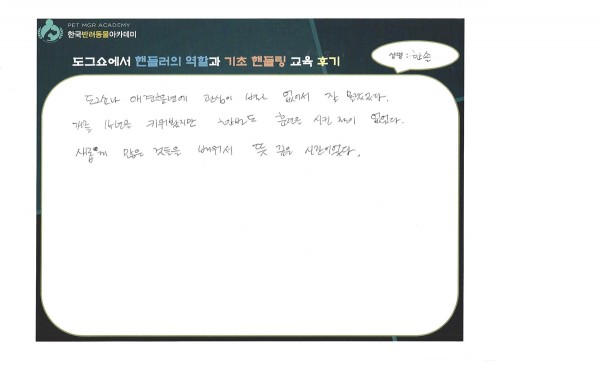 PET MGR ACADEMY
한국반려동물아카데미
도그쇼에서 핸들러의 역할과 기초 핸들링 교육 후기
성명 : 한솔
도그쇼나 애견훈련에 관심이 별로 없어서 잘 몰랐었다.
개를 14년동 키워봤지만 한번도 훈련은 시킨 적이 없었다.
새롭게 많은 것들을 배워서 뜻 깊은 시간이었다.